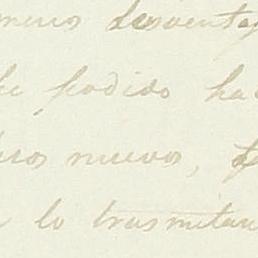 menos desventaj
he podido ha
ros nuevos,
lo trasmitan